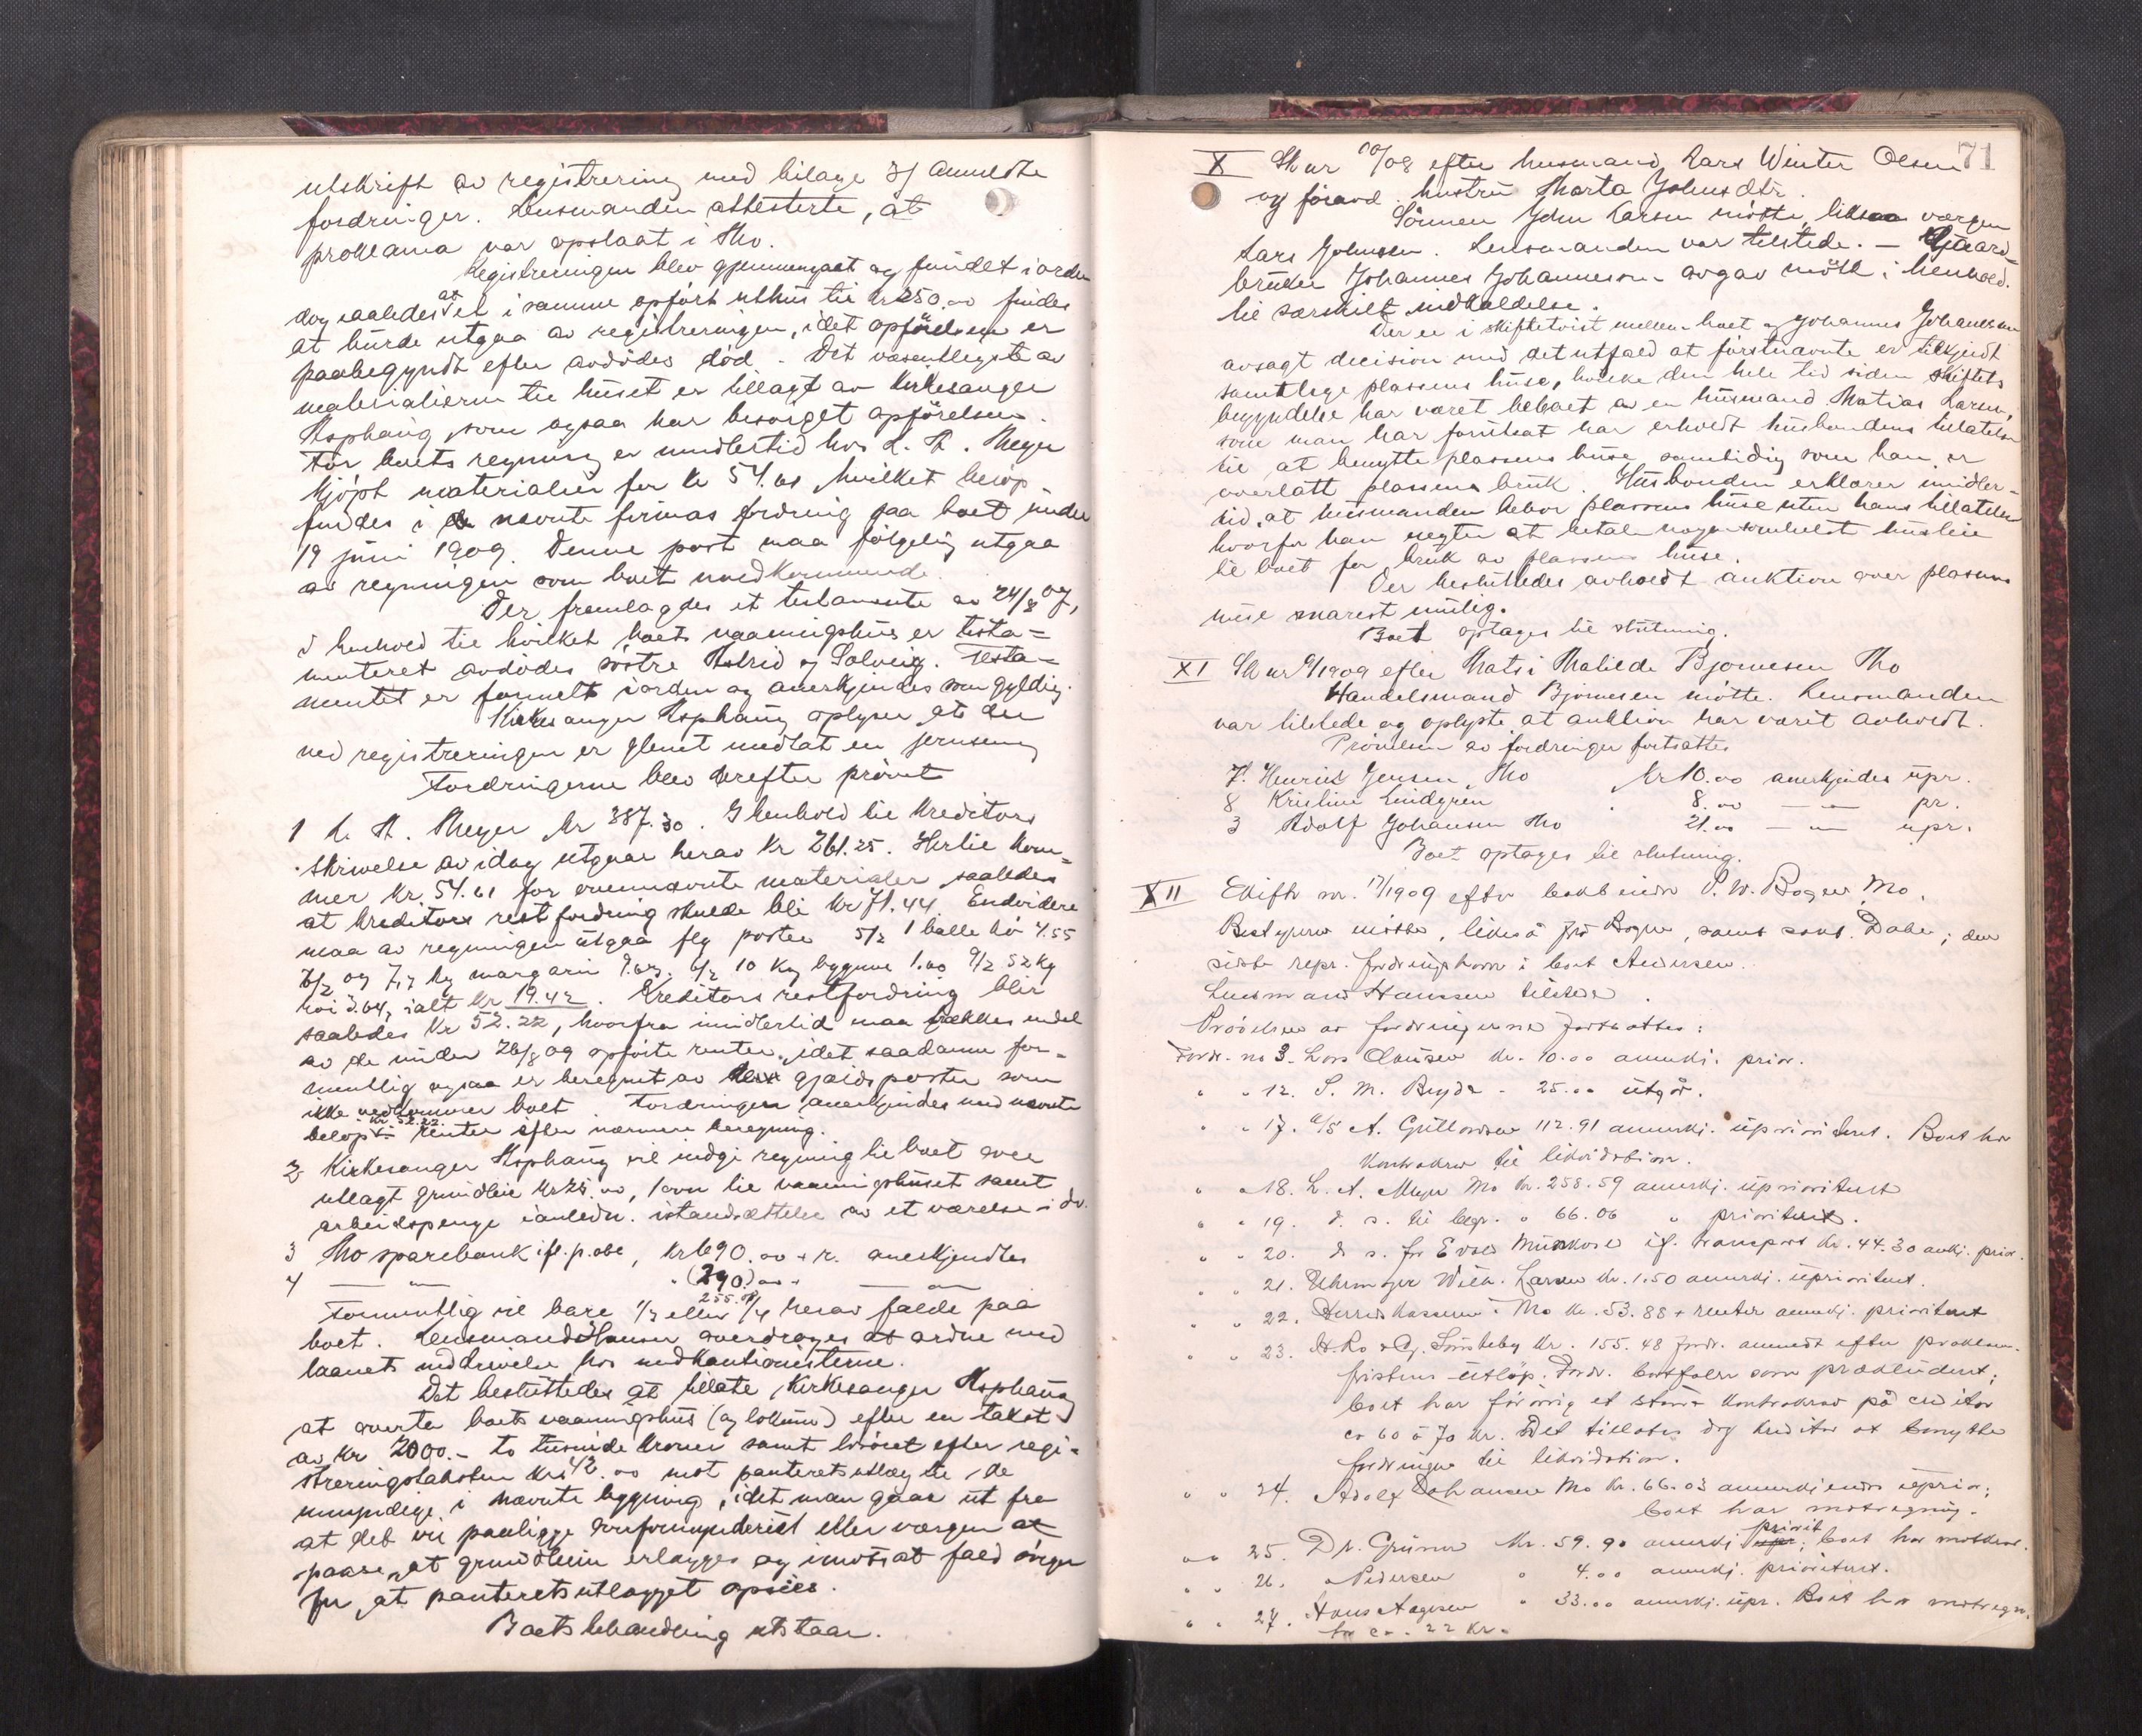 utskrift av registrering med bilage af anmeldte
fordringer. Lensmanden attesterte, at
proklama var opslaat i Mo.
Registreringen blev gjennemgaat og fundet i orden
dog saaledes at et i samme opført uthus til kr 250.00 findes
at burde utgaa av registreringen, idet opførelsen er
paabegyndt efter avdødes død. Det væsentligste av
materialierne til huset er tillagt av Kirkesanger
Asphaug, som ogsaa har besørget opførelsen.
For boets regning er imidlertid hos L. A. Meyer
kjøpt materialier for kr 54.61 hvilket beløp
findes i nævnte firmas fordring paa boet under
19 juni 1909. Denne post maa følgelig utgaa
av regningen som boet uvedkommende.
Der fremlagdes et testamente av 24/8 07,
i henhold til hvilket boets vaaningshus er testa=
menteret avdødes søstre Astrid og Solveig. Testa=
mentet er formelt i orden og anerkjendes som gyldig.
Kirkesanger Asphaug oplyser at der
ved registreringen er glemt medtat en jernseng
Fordringerne blev derefter prøvet
1 L. A. Meyer kr 387.30. I henhold til kreditors
skrivelse av idag utgaar herav kr 261.25. Hertil kom=
mer kr. 54.61 for ovennævnte materialer saaledes
at kreditors restfordring skulde bli kr 71.44 Endvidere
maa av regningen utgaa flg poster 5/2 1 balle hø 4.55
10 kg byggmel 1.00 9/2 52 kg
høi 3.64, ialt kr 19.42. Kreditors restfordring blir
saaledes kr 52.22, hvorfra imidlertid maa trækkes endel
av de under 26/8 09 opførte renter, idet saadanne for=
mentlig ogsaa er beregnet av gjældsposter som
ikke vedkommer boet. Fordringen anerkjendes med nævnte
beløp kr. 52.22 + renter efter nærmere beregning.
2 Kirkesanger Asphaug vil indgi regning til boet over
utlagt grundleie kr 25.00, 1 ovn til vaaningshuset samt
arbeidspenge i anledn. istandsættelse av et værelse i do.
3 Mo sparebank ifl. p. obl, kr 690.00 + r. anerkjendtes
4 — " — " (290) 00 — " —
Formentlig vil bare 1/3 eller 1/4 herav falde paa
boet. Lensmand Hansen overdrages at ordne med
laanets inddrivelse hos medkautionisterne.
Det besluttedes at tillate Kirkesanger Asphaug
at overta boets vaaningshus (og lokum) efter en takst
av kr 2000.- to tusinde kroner samt løsøret efter regi=
streringstaksten kr 42.00 mot panteretsutlæg til de
umyndige i nævnte bygning, idet man gaar ut fra
at det vil paaligge overformynderiet eller værgen at
paase, at grundleien erlægges og i motsat fald sørge
for, at panteretsutlægget opsies.
Boets behandling utstaar.
71
X Sk nr 10/08 efter husmand Lars Winter Olsen
og foravd. hustru Marta Johnsdtr.
Sønnen John Larsen møtte, liksaa værgen
Lars Johnsen. Lensmanden var tilstede. — Gaard=
bruker Johannes Johannesen avgav møtte i henhold
til særskilt indkaldelse.
Der er i skiftetvist mellem boet og Johannes Johannesen
avsagt decision med det utfald at førstnævnte er tilkjendt
samtlige plassens huse, hvilke den hele tid siden skiftets
begyndelse har været beboet av en husmand Matias Larsen,
som man har forutsat har erholdt husbondens tillatelse
til at benytte plassens huse samtidig som han er
overlatt plassens bruk. Husbonden erklærer imidler=
tid, at husmanden bebor plassens huse uten hans tillatelse
hvorfor han negter at betale nogensomhelst husleie
til boet for bruk av plassens huse.
Der besluttedes avholdt auktion over plassens
huse snarest mulig.
Boet optages til slutning.
XI Sk nr 9/1909 efter Matsi Matilde Bjørnesen Mo
Handelsmand Bjørnesen møtte. Lensmanden
var tilstede og oplyste at auktion har været avholdt.
Prøvelsen av fordringer fortsattes
7. Henrik Jensen, Mo kr 10.00 anerkjendes upr.
8 Kristine Lindgren " 8.00 — " — pr.
3 Adolf Johansen Mo 21.00 — " — upr.
Boet optages til slutning.
XII Skifte nr. 17/1909 efter bokbinder P. W. Bogen, Mo.
Bestyreren møtte, likeså fru Bogen, samt sakf. Dahl; den
sidste repr. fordringshaver i boet Andersen.
Lensmand Hanssen tilstede.
Prøvelsen av fordringerne fortsattes:
Fordr. no 3. Lars Clausen kr. 10.00 anerkj. prior.
" " 12. S. M. Bryde - 25.00 utgår.
" " 17. a/s A. Gulbransen 112.91 anerkj. uprioritert. Boet har
kontrakrav til likvidation.
" " 18. L. A. Meyer Mo kr. 258.59 anerkj. uprioritert
" " 19. d. s. til begr. " 66.06 " prioritert.
" " 20. d s. for if. transport kr. 44.30 ankj. prior.
" " 21. Uhrmager Wilh. Larsen kr. 1.50 anerkj. uprioritert.
" " 22. Herredskassen i Mo kr. 53.88 + renter anerkj. prioritert
" " 23. kr. 155.48 fordr. anmeldt efter proklama-
fristens utløp. Fordr. bortfaller som prækluderet;
boet har forøvrig et større kontrakrav på creditor
ca 60 à 70 kr. Det tillates dog kreditor at benytte
fordringen til likvidation.
" " 24. Adolf Johansen Mo kr. 66.03 anerkjendes uprior;
boet har motregning.
" " 25. Dr. Grüner kr. 59.90 anerkj. priorit; boet har motkrav.
" " 26. " Pedersen " 4.00 anerkj. prioritert.
" " 27. Hans Aagesen " 33.00 anerkj. upr. Boet har motregn.
for ca. 22 kr.